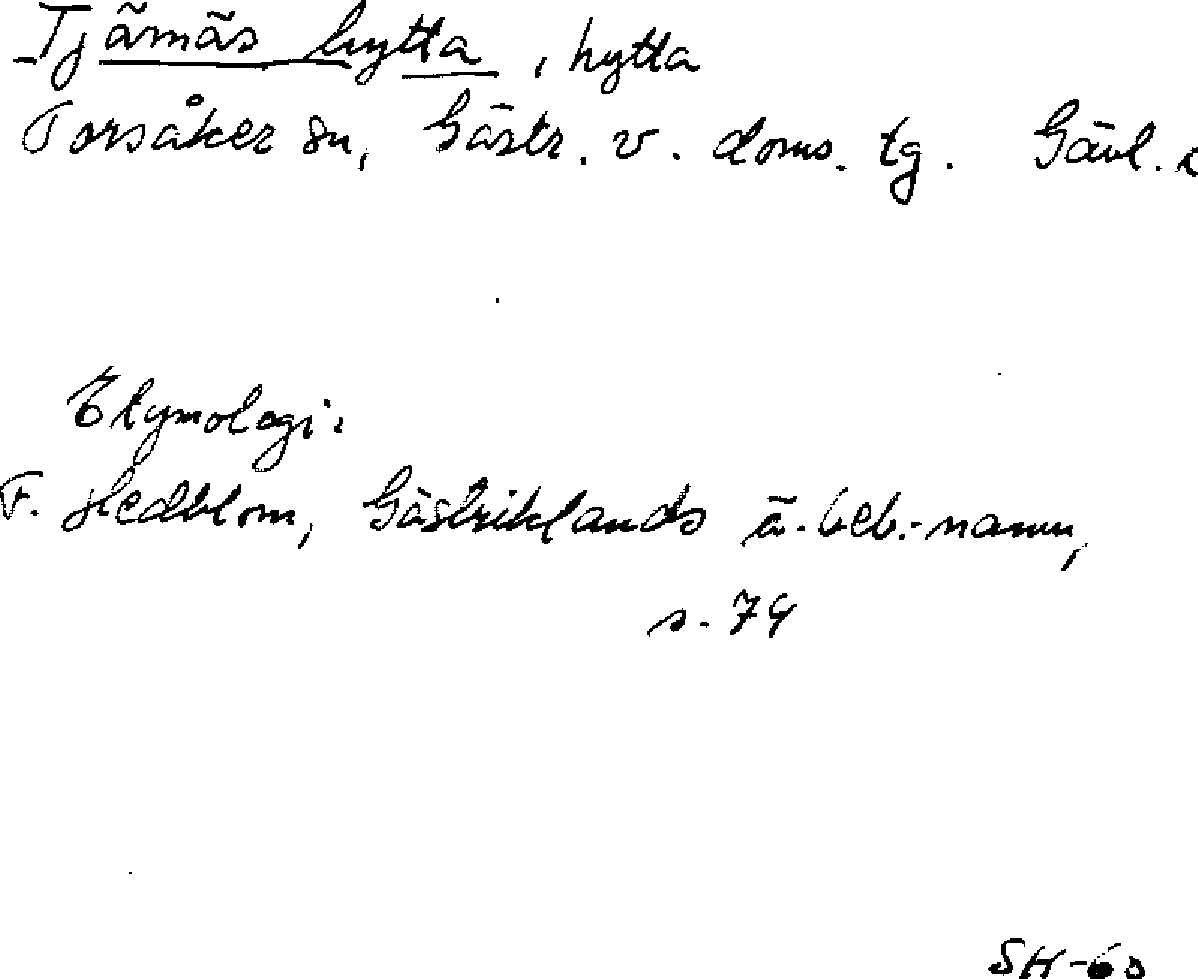 Tjämäs hytta, hytta
Torsåker sn, Gästr. v. doms. tg. Gävl.
Etymologi:
F. Hedblom, Gästriklands ä. beb.-namn,
s. 74
SH-60